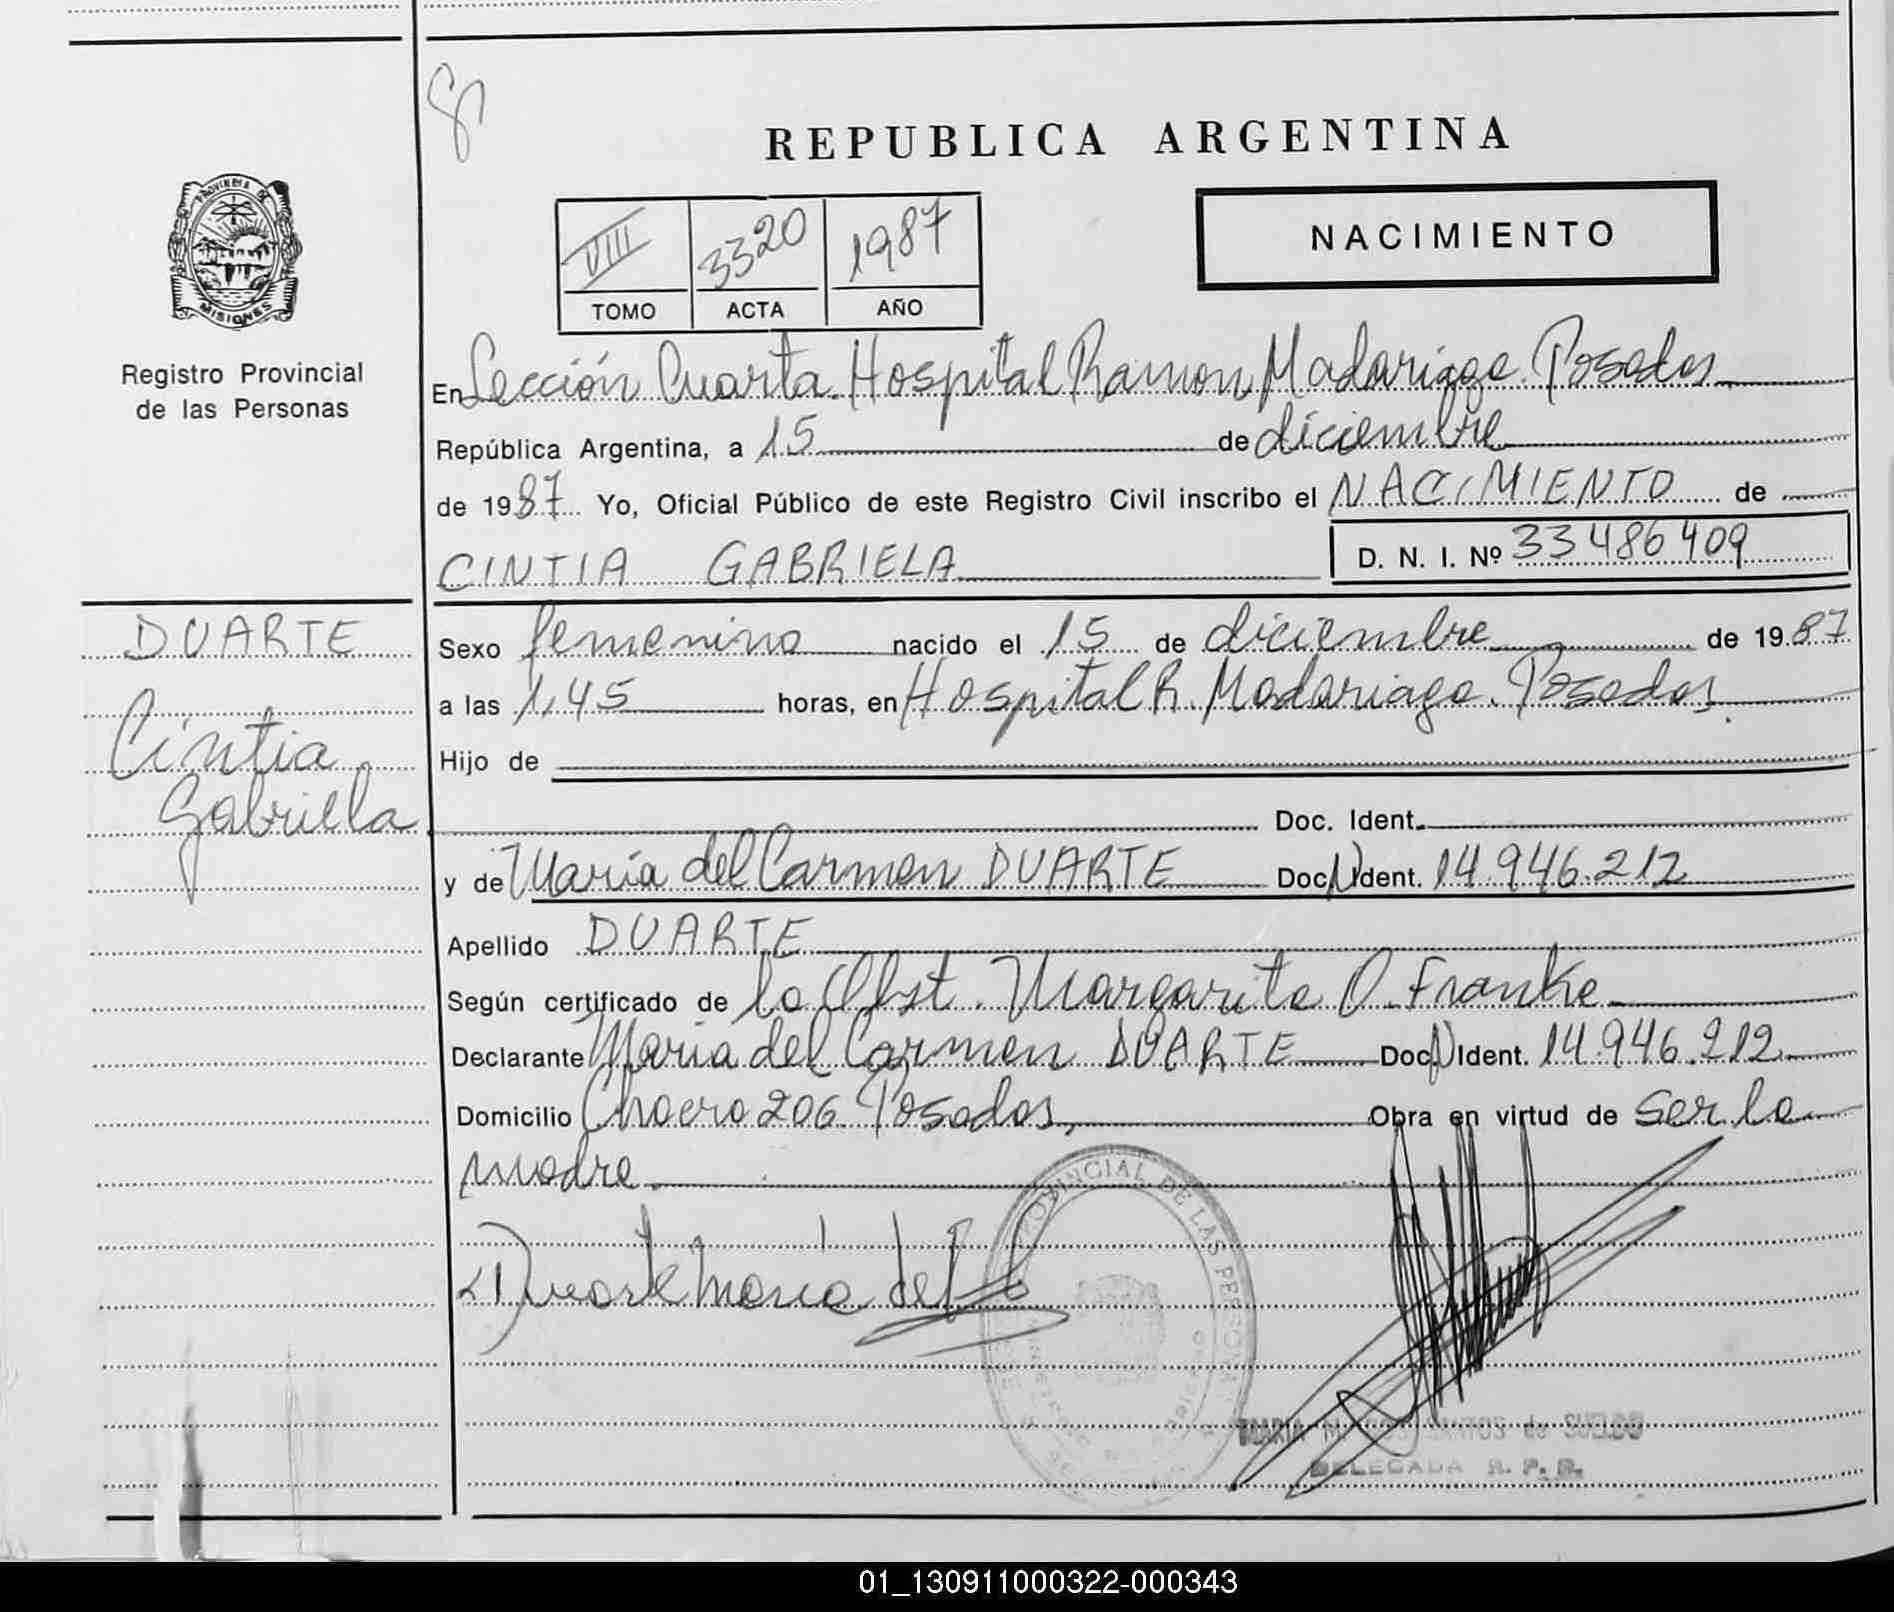 REPUBLICA ARGENTINA
PROVINCIA DE
MISIONES
Registro Provincial
de las Personas
VIII 3320 1987
TOMO ACTA AÑO
NACIMIENTO
En Sección Cuarta. Hospital Ramon Madariaga. Posadas
República Argentina, a 15 de diciembre
de 1987 Yo, Oficial Público de este Registro Civil inscribo el NACIMIENTO de
CINTIA GABRIELA D. N. I. Nº 33486409
DUARTE
Cintia
Gabriela
Sexo femenino nacido el 15 de diciembre de 1987
a las 1,45 horas, en Hospital R. Madariaga. Posadas.
Hijo de
Doc. Ident.
y de María del Carmen DUARTE Doc. N. Ident. 14.946.212
Apellido DUARTE
Según certificado de la Obst. Margarita O. Franke
Declarante María del Carmen DUARTE Doc. N. Ident. 14.946.212
Domicilio Chacra 206. Posadas, Obra en virtud de ser la
madre.
Duarte maria del
PROVINCIAL DE LAS PERSONAS
MARIA M. SANTOS de
DELEGADA R. P. P.
01_130911000322-000343